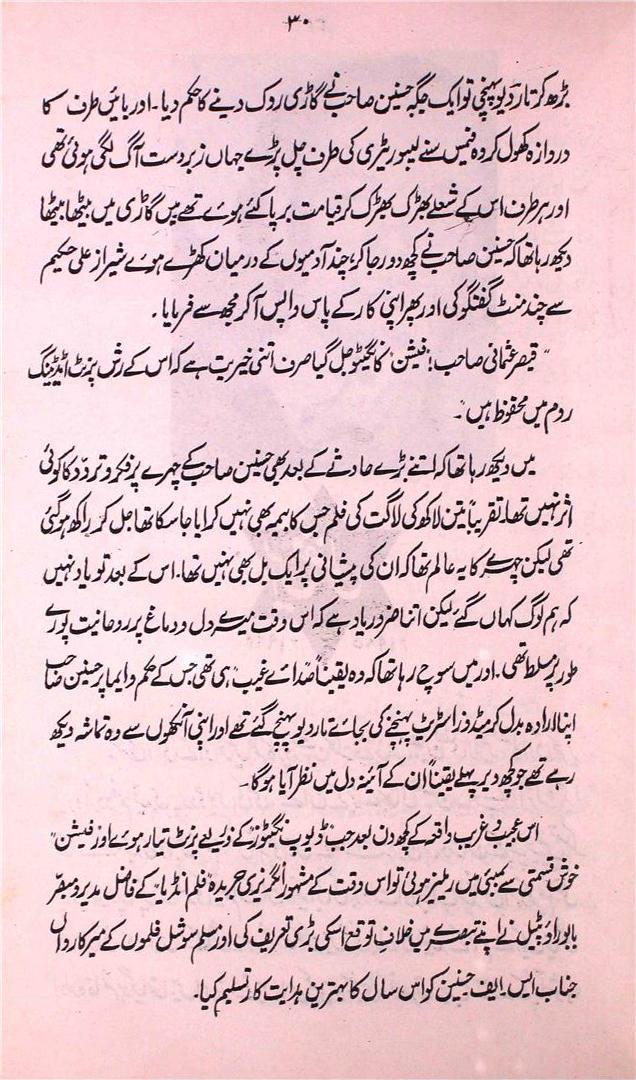 ۳۰
بڑھ کر تار دیو پہنچی تو ایک جگہ حسنین صاحب نے گاڑی روک دینے کا حکم دیا۔ اور بائیں طرف کا
دروازہ کھول کر وہ فیمس سنے لیبوریٹری کی طرف چل پڑے جہاں زبردست آگ لگی ہوئی تھی
اور ہر طرف اس کے شعلے بھڑک بھڑک کر قیامت برپا کئے ہوے تھے میں گاڑی میں بیٹھا بیٹھا
دیکھ رہا تھا کہ حسنین صاحب نے کچھ دور جا کر، چند آدمیوں کے درمیان کھڑے ہوے شیراز علی حکیم
سے چند منٹ گفتگو کی اور پھر اپنی کار کے پاس واپس آ کر مجھ سے فرمایا۔
"قیصر عثمانی صاحب! "فیشن" کا نگیٹو جل گیا صرف اتنی خیریت ہے کہ اس کے رش پرنٹ اڈیٹنگ
روم میں محفوظ ہیں"۔
میں دیکھ رہا تھا کہ اتنے بڑے حادثے کے بعد بھی حسنین صاحب کے چہرے پر فکر و تردد کا کوئی
اثر نہیں تھا۔ تقریباً تین لاکھ کی لاگت کی فلم جس کا بیمہ بھی نہیں کرایا جا سکا تھا جل کر راکھ ہو گئی
تھی لیکن چہرے کا یہ عالم تھا کہ ان کی پیشانی پر ایک بل بھی نہیں تھا۔ اس کے بعد تو یاد نہیں
کہ ہم لوگ کہاں گئے لیکن اتنا ضرور یاد ہے کہ اس وقت میرے دل و دماغ پر روحانیت پورے
طور پر مسلط تھی۔ اور میں سوچ رہا تھا کہ وہ یقیناً صدائے غیب ہی تھی جس کے حکم و ایما پر حسنین صاحب
اپنا ارادہ بدل کر میڈوز اسٹریٹ پہنچنے کی بجائے تار دیو پہنچ گئے تھے اور اپنی آنکھوں سے وہ تماشہ دیکھ
رہے تھے جو کچھ دیر پہلے یقیناً ان کے آئینہ دل میں نظر آیا ہوگا۔
اس عجیب و غریب واقعہ کے کچھ دن بعد جب ڈیوپ نگیٹوز کے ذریعے پرنٹ تیار ہوے اور فیشن"
خوش قسمتی سے بمبئی میں ریلیز ہوئی تو اس وقت کے مشہور انگریزی جریدہ "فلم انڈیا" کے فاضل مدیر و مبصر
بابو راؤ پٹیل نے اپنے تبصرے میں خلاف توقع اسکی بڑی تعریف کی اور مسلم سوشل فلموں کے میر کارواں
جناب ایس۔ ایف حسنین کو اس سال کا بہترین ہدایت کار تسلیم کیا۔